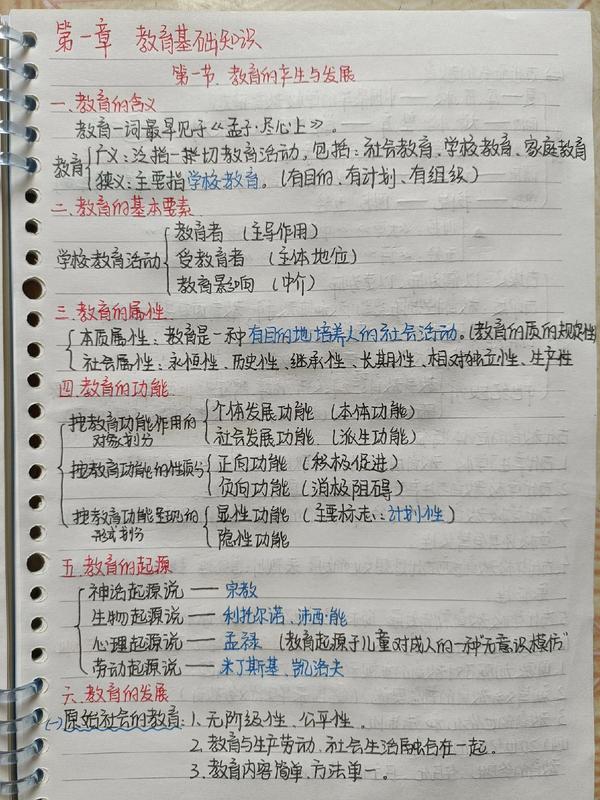 第一章 教育基础知识
第一节、教育的产生与发展
一、教育的含义
教育一词最早见于《孟子·尽心上》。
教育 广义：泛指一切教育活动，包括：社会教育、学校教育、家庭教育
狭义：主要指学校教育。（有目的、有计划、有组织）
二、教育的基本要素
学校教育活动 教育者（主导作用）
受教育者（主体地位）
教育影响（中介）
三、教育的属性
本质属性：教育是一种有目的地培养人的社会活动。（教育的质的规定性）
社会属性：永恒性、历史性、继承性、长期性、相对独立性、生产性
四、教育的功能
按教育功能作用的对象划分 个体发展功能（本体功能）
社会发展功能（派生功能）
按教育功能的性质分 正向功能（积极促进）
负向功能（消极阻碍）
按教育功能呈现的形式划分 显性功能（主要标志：计划性）
隐性功能
五、教育的起源
神话起源说——宗教
生物起源说——利托尔诺、沛西·能
心理起源说——孟禄（教育起源于儿童对成人的一种“无意识模仿”
劳动起源说——米丁斯基、凯洛夫
六、教育的发展
(一)原始社会的教育：1.无阶级性、公平性。
2.教育与生产劳动、社会生活融合在一起。
3.教育内容简单、方法单一。